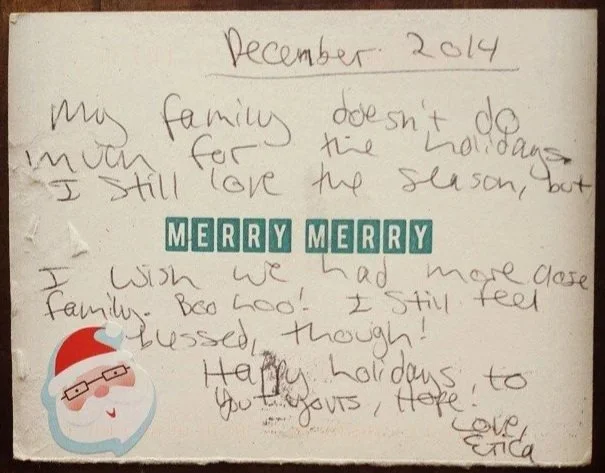 December 2014
My family doesn't do
much for the holidays.
I still love the season, but
MERRY MERRY
I wish we had more close
family. Boo hoo! I still feel
blessed, though!
Happy holidays, to
you + yours, Hope!
Love,
Erica